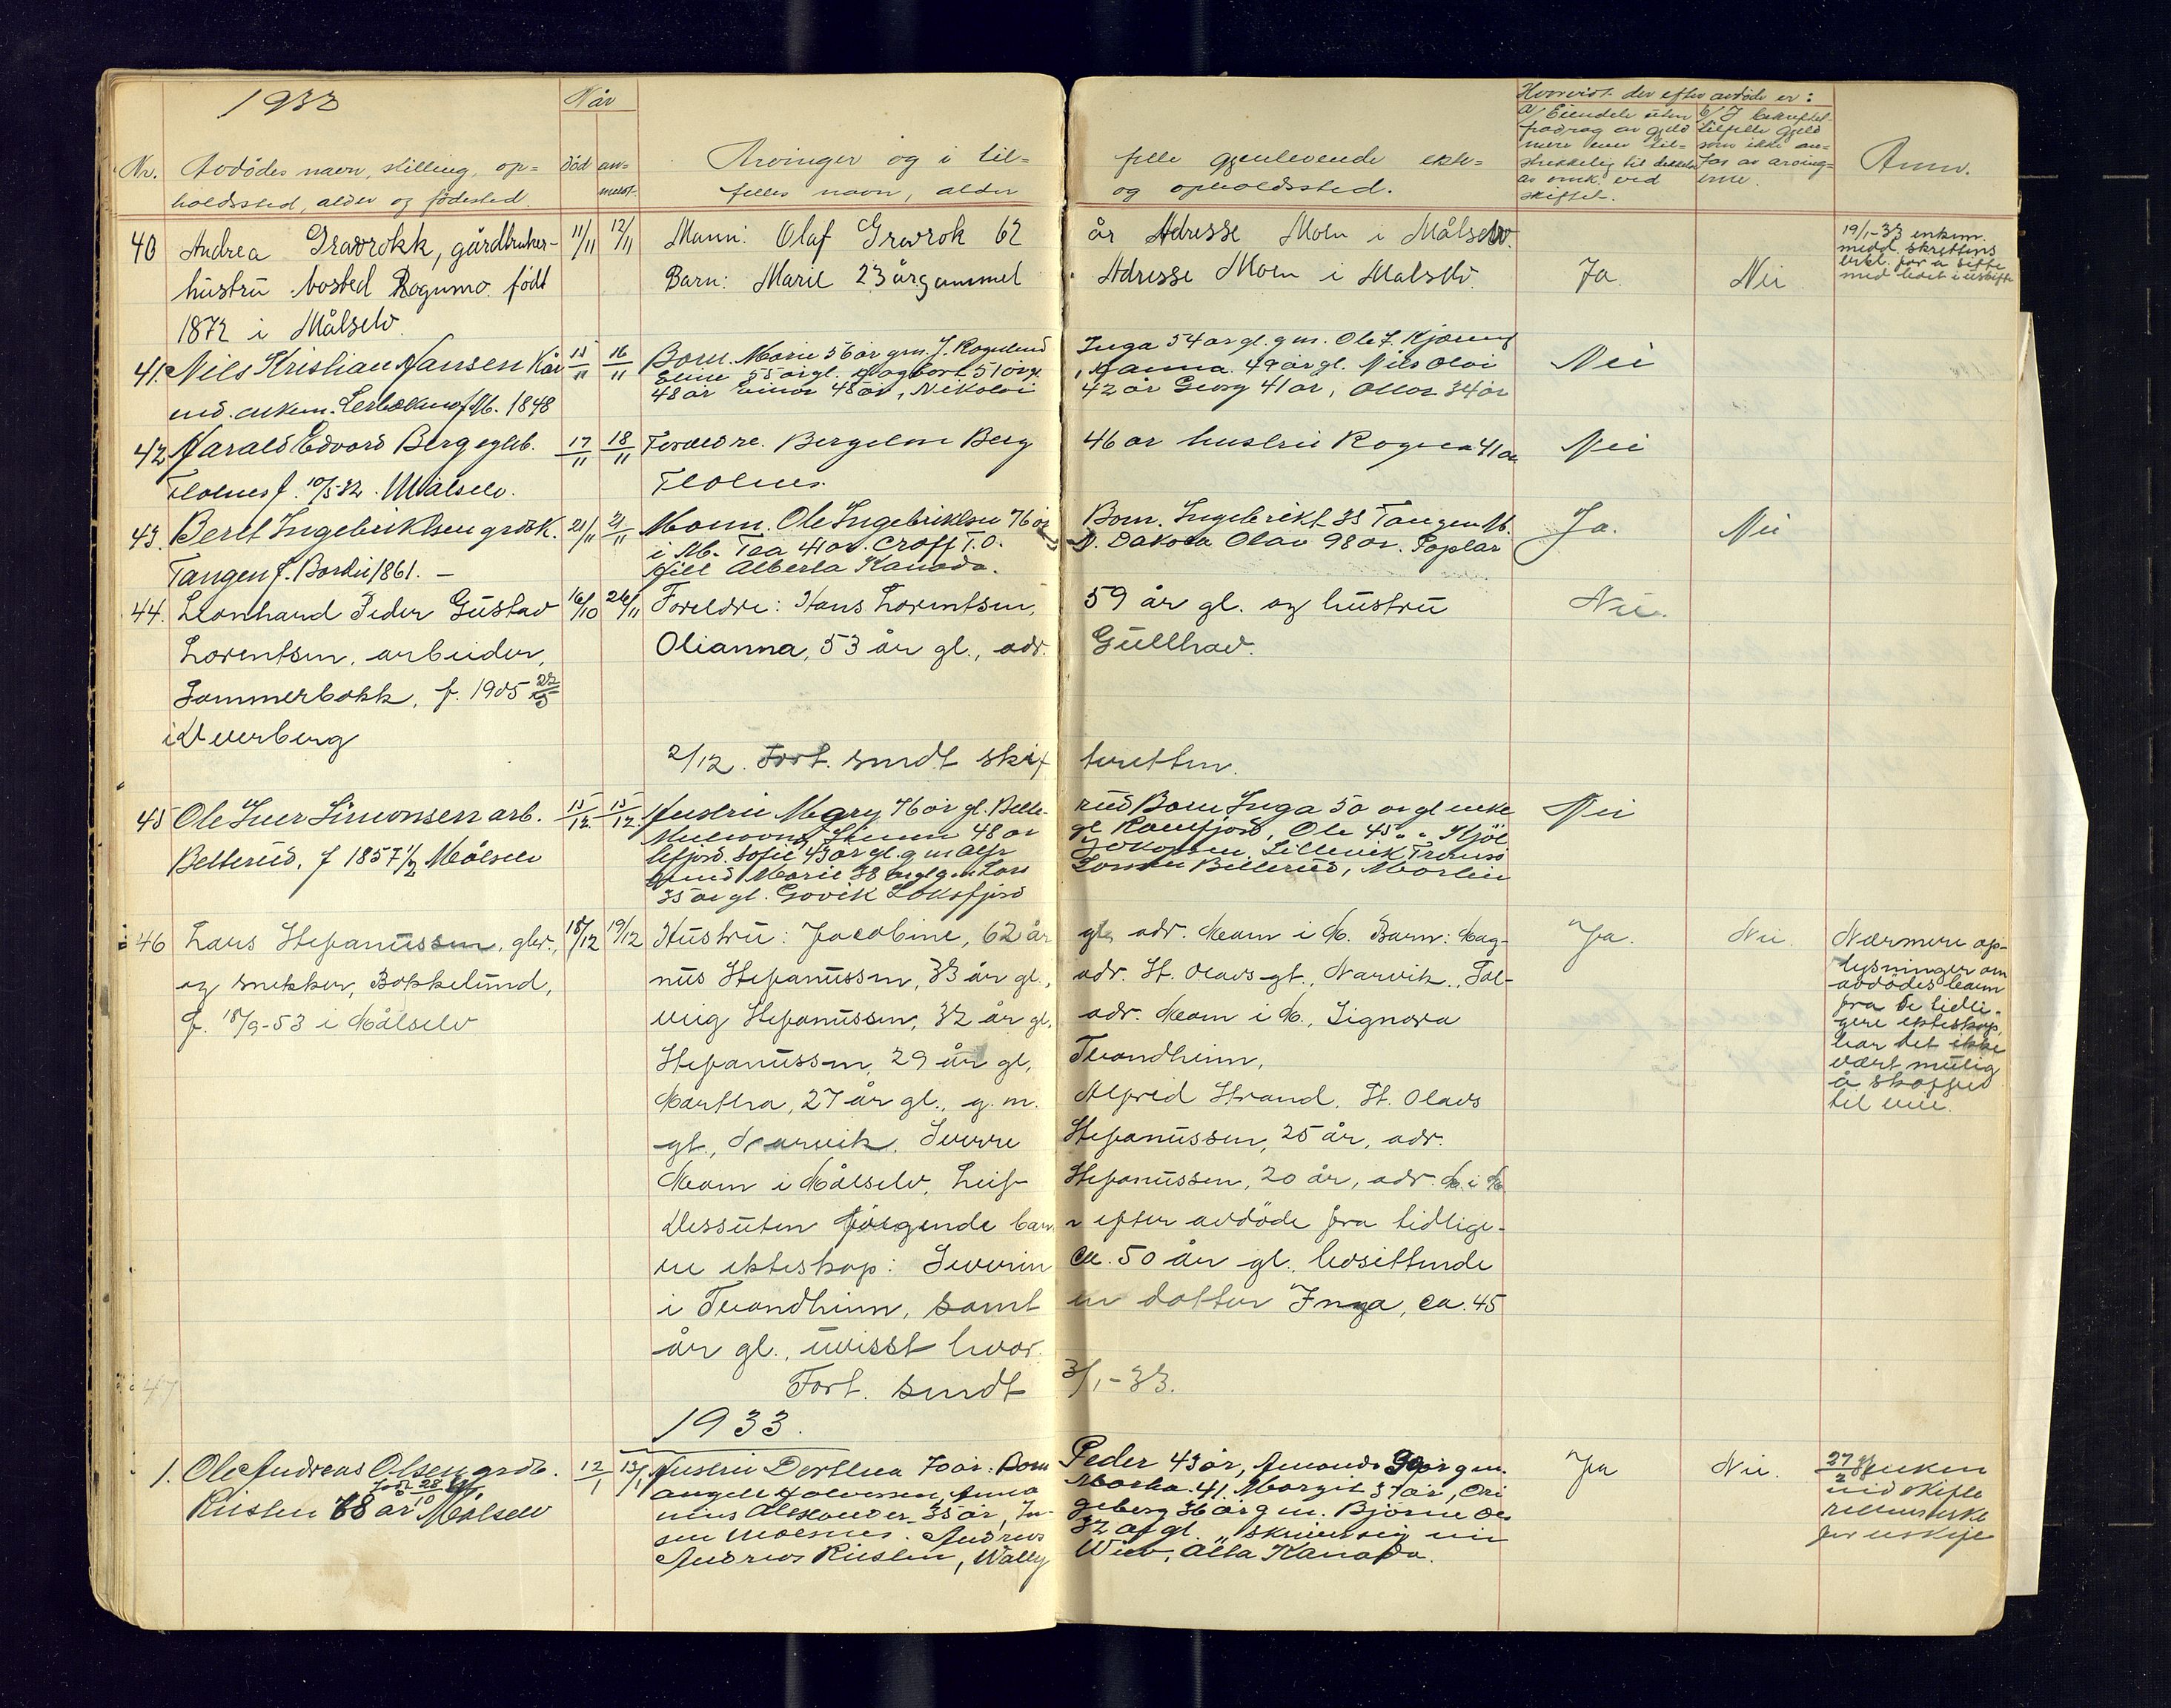 1932
Når
Hvorvidt der efter avdøde er:
Nr. Avdødes navn, stilling, op=
holdssted, alder og fødested.
død an=
meldt.
Arvinger og i til= felle gjenlevende ekte=
felles navn, alder og opholdssted.
a/ Eiendele uten
fradrag av gjeld
mere enn til=
strekkelig til dekkelse
av omk. ved
skiftet.
b/ I bekreftet
tilfelle gjeld
som ikke an=
tas av arving=
erne.
Anm.
40 Andrea Gravrokk, gårdbruker- 11/11 12/11 Mann: Olaf Gravrok 62 år Adresse Moen i Målselv.
hustru bosted Rognmo født Barn: Marie 23 år gammel Adresse Moen i Målselv. Ja Nei
1872 i Målselv.
19/1-33 enkem.
medd. skrettens
erkl. for å sitte
med boet i uskifte
41. Nils Kristian Hansen Kår 15/11 16/11 Barn. Marie 56 år gm. J. Rognlund Inga 54 år gl. g m. Ole J.
Eline 55 år gl. Dagbort 51 år gl. Hanna 49 år gl. Nils Olai Nei
md. enkem. f. Mb. 1848 48 år Einar 45 år, Nikolai 42 år Georg 41 år, Ottar 34 år
42 Harald Edvard Berg 17/11 18/11 Foreldre. Bergeton Berg 46 år hustru Ragna 41 år Nei
Flolnes f. 10/5-32. Målselv. Flolnes.
43. Beret Ingebriktsen grdbk. 21/11 21/11 Mann. Ole Ingebriktsen 76 år Barn. Ingebrikt 38 Tangen M. Ja. Nei
i Mb. Tea 41 år. Croff T.O. N. Dakota Olav 98 år. Poplar
Tangen f. Bardu 1861. – Hill Alberta Kanada.
44. Leonhard Peder Gustav 16/10 26/11 Foreldre: Hans Lorentsen, 59 år gl. og hustru Nei.
Lorentsen, arbeider, Olianna, 53 år gl., adr. Gullhav.
Sommerbakk, f. 1905 22/5
i Dverberg
2/12. Fort. sendt skifteretten.
45 Ole Iver Simonsen arb. 15/12 15/12. Hustru Mary 76 år gl. Belte- rud Barn Inga 50 år gl enke Nei
48 år gl Ramfjord, Ole 45 " " Kjöl
Belterud. f 1857 1/2 Målselv lefjord. Sofie 43 år gl. g m Alfr Lillevik Tromsö
Marie 38 år gl g m Lars Larsen Belterud, Martin
35 år gl. Govik Laksfjord
46 Lars Stefanussen, gbr. 18/12 19/12 Hustru: Jacobine, 62 år gl. adr. Moen i M. Barn: Mag- Ja. Nei.
og snekker, Bakkelund, nus Stefanussen, 33 år gl., adr. St. Olavs gt., Narvik, Sol-
f. 18/9-53 i Målselv veig Stefanussen, 32 år gl. adr. Moen i M., Signora
Stefanussen, 29 år gl. Trondheim,
Martha, 27 år gl., g. m. Alfred Strand. St. Olavs
gt., Narvik. Sverre Stefanussen, 25 år, adr.
Moen i Målselv, Leif Stefanussen, 20 år, adr. M. i M.
Dessuten følgende barn efter avdøde fra tidlige-
re ekteskap: Severin ca. 50 år gl., bosittende
i Trondheim, samt en datter Inga, ca. 45
år gl., uvisst hvor.
Nærmere op-
lysninger om
avdødes barn
fra de tidli-
gere ekteskap,
har det ikke
vært mulig
å skaffe
til veie.
47
Fort. sendt 3/1-33.
1933.
1. Ole Andreas Olsen grdb. 12/1 13/1 Hustru Dorthea 70 år: Barn Peder 43 år, Amanda g m. Ja Nei.
født 28/10 Anna Marka. 41. Margit 37 år,
Rusten 78 år Målselv Alexander 35 år, In- geberg 36 år g m. Bjarne
sen Moesnes. Andreas 32 år gl. " skriver sig
Andreas Rusten, Wally Wiev, Alta Kanada.
27/2 33 enken